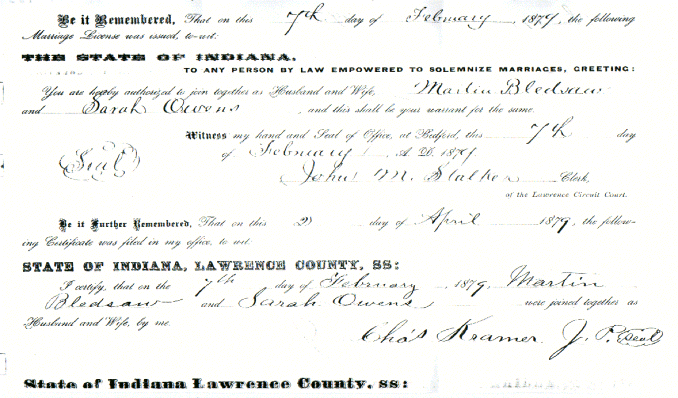 Be it Remembered, That on this 7th day of February 1879, the following
Marriage License was issued, to-wit:
THE STATE OF INDIANA,
TO ANY PERSON BY LAW EMPOWERED TO SOLEMNIZE MARRIAGES, GREETING:
You are hereby authorized to join together as Husband and Wife, Martin Bledsaw
and Sarah Owens, and this shall be your warrant for the same.
Witness my hand and Seal of Office, at Bedford, this 7th day
of February A. D. 1879
Seal
John M. Stalker Clerk,
of the Lawrence Circuit Court.
Be it Further Remembered, That on this 2) day of April 1879, the follow-
ing Certificate was filed in my office, to wit:
STATE OF INDIANA, LAWRENCE COUNTY, SS:
I certify, that on the 7th day of February 1879, Martin
Bledsaw and Sarah Owens were joined together as
Husband and Wife, by me.
Chas Kramer. J. P. Seal
State of Indiana Lawrence County, ss: